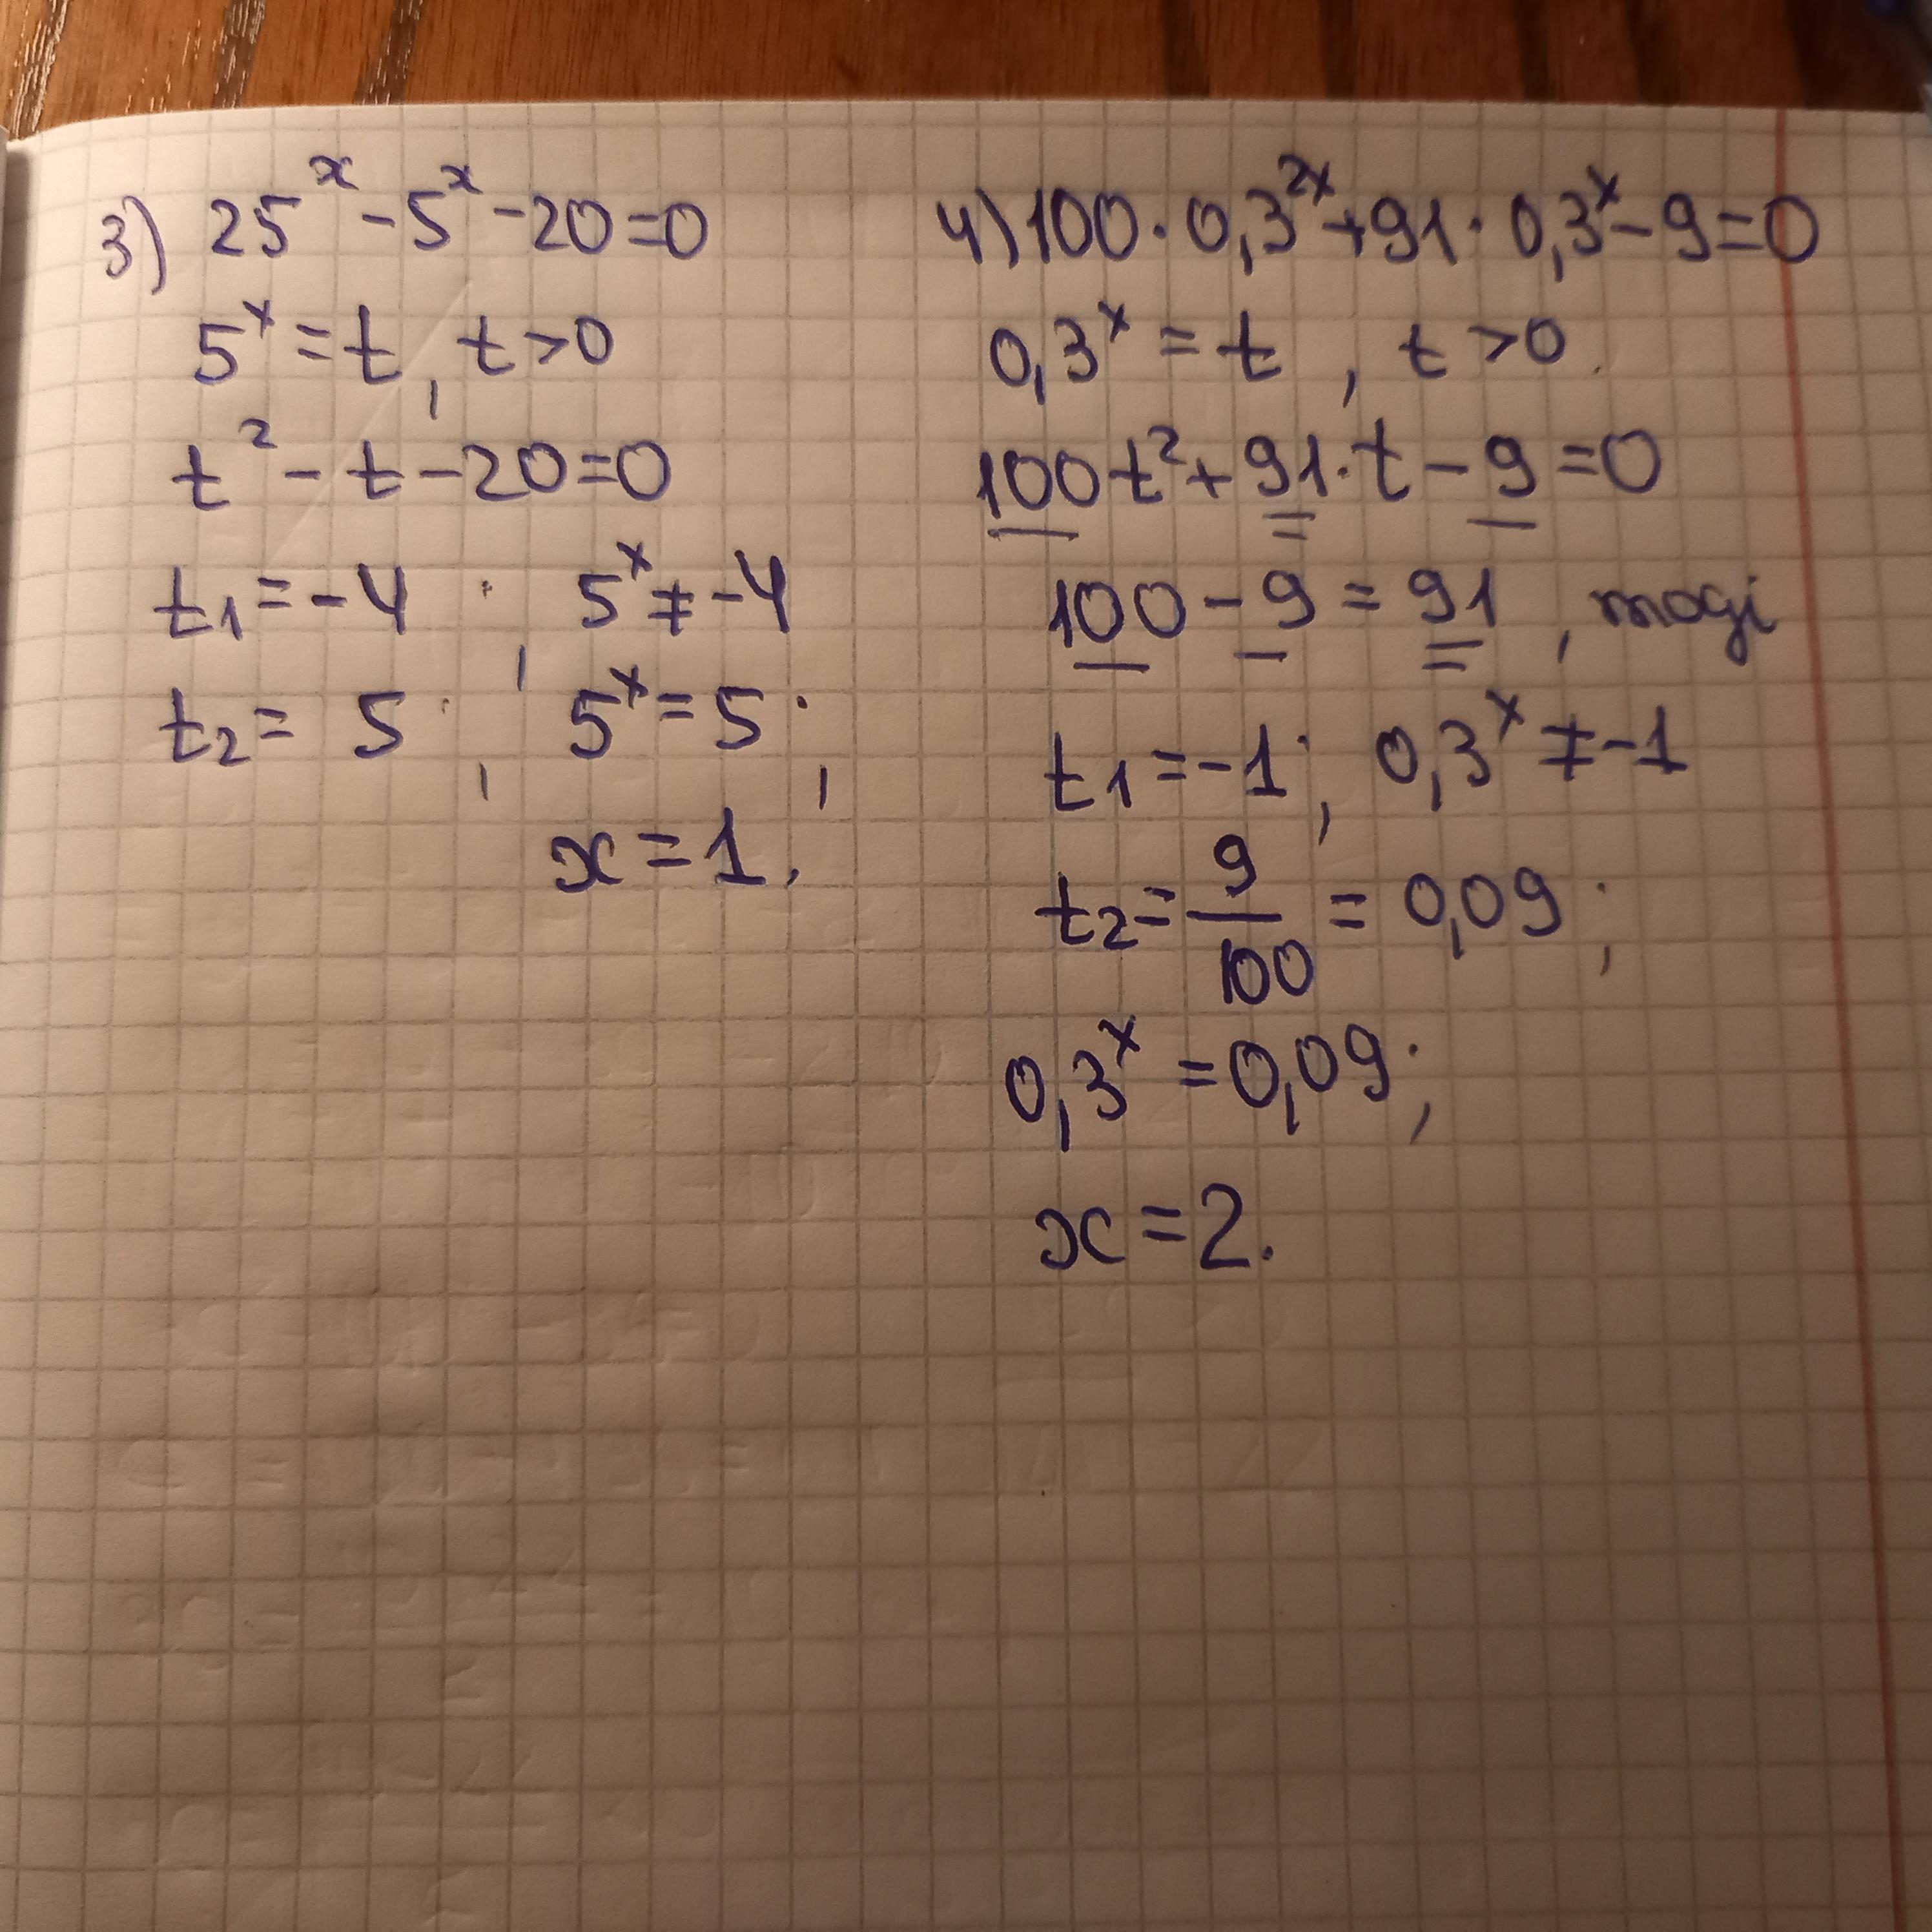 3) 25ˣ - 5ˣ - 20 = 0
5ˣ = t, t > 0
t² - t - 20 = 0
t₁ = -4 ; 5ˣ ≠ -4
t₂ = 5 ; 5ˣ = 5 ;
x = 1.
4) 100 · 0,3²ˣ + 91 · 0,3ˣ - 9 = 0
0,3ˣ = t , t > 0.
100t² + 91 · t - 9 = 0
100 - 9 = 91 , тоді
t₁ = -1 ; 0,3ˣ ≠ -1
t₂ = 9/100 = 0,09 ;
0,3ˣ = 0,09 ;
x = 2.